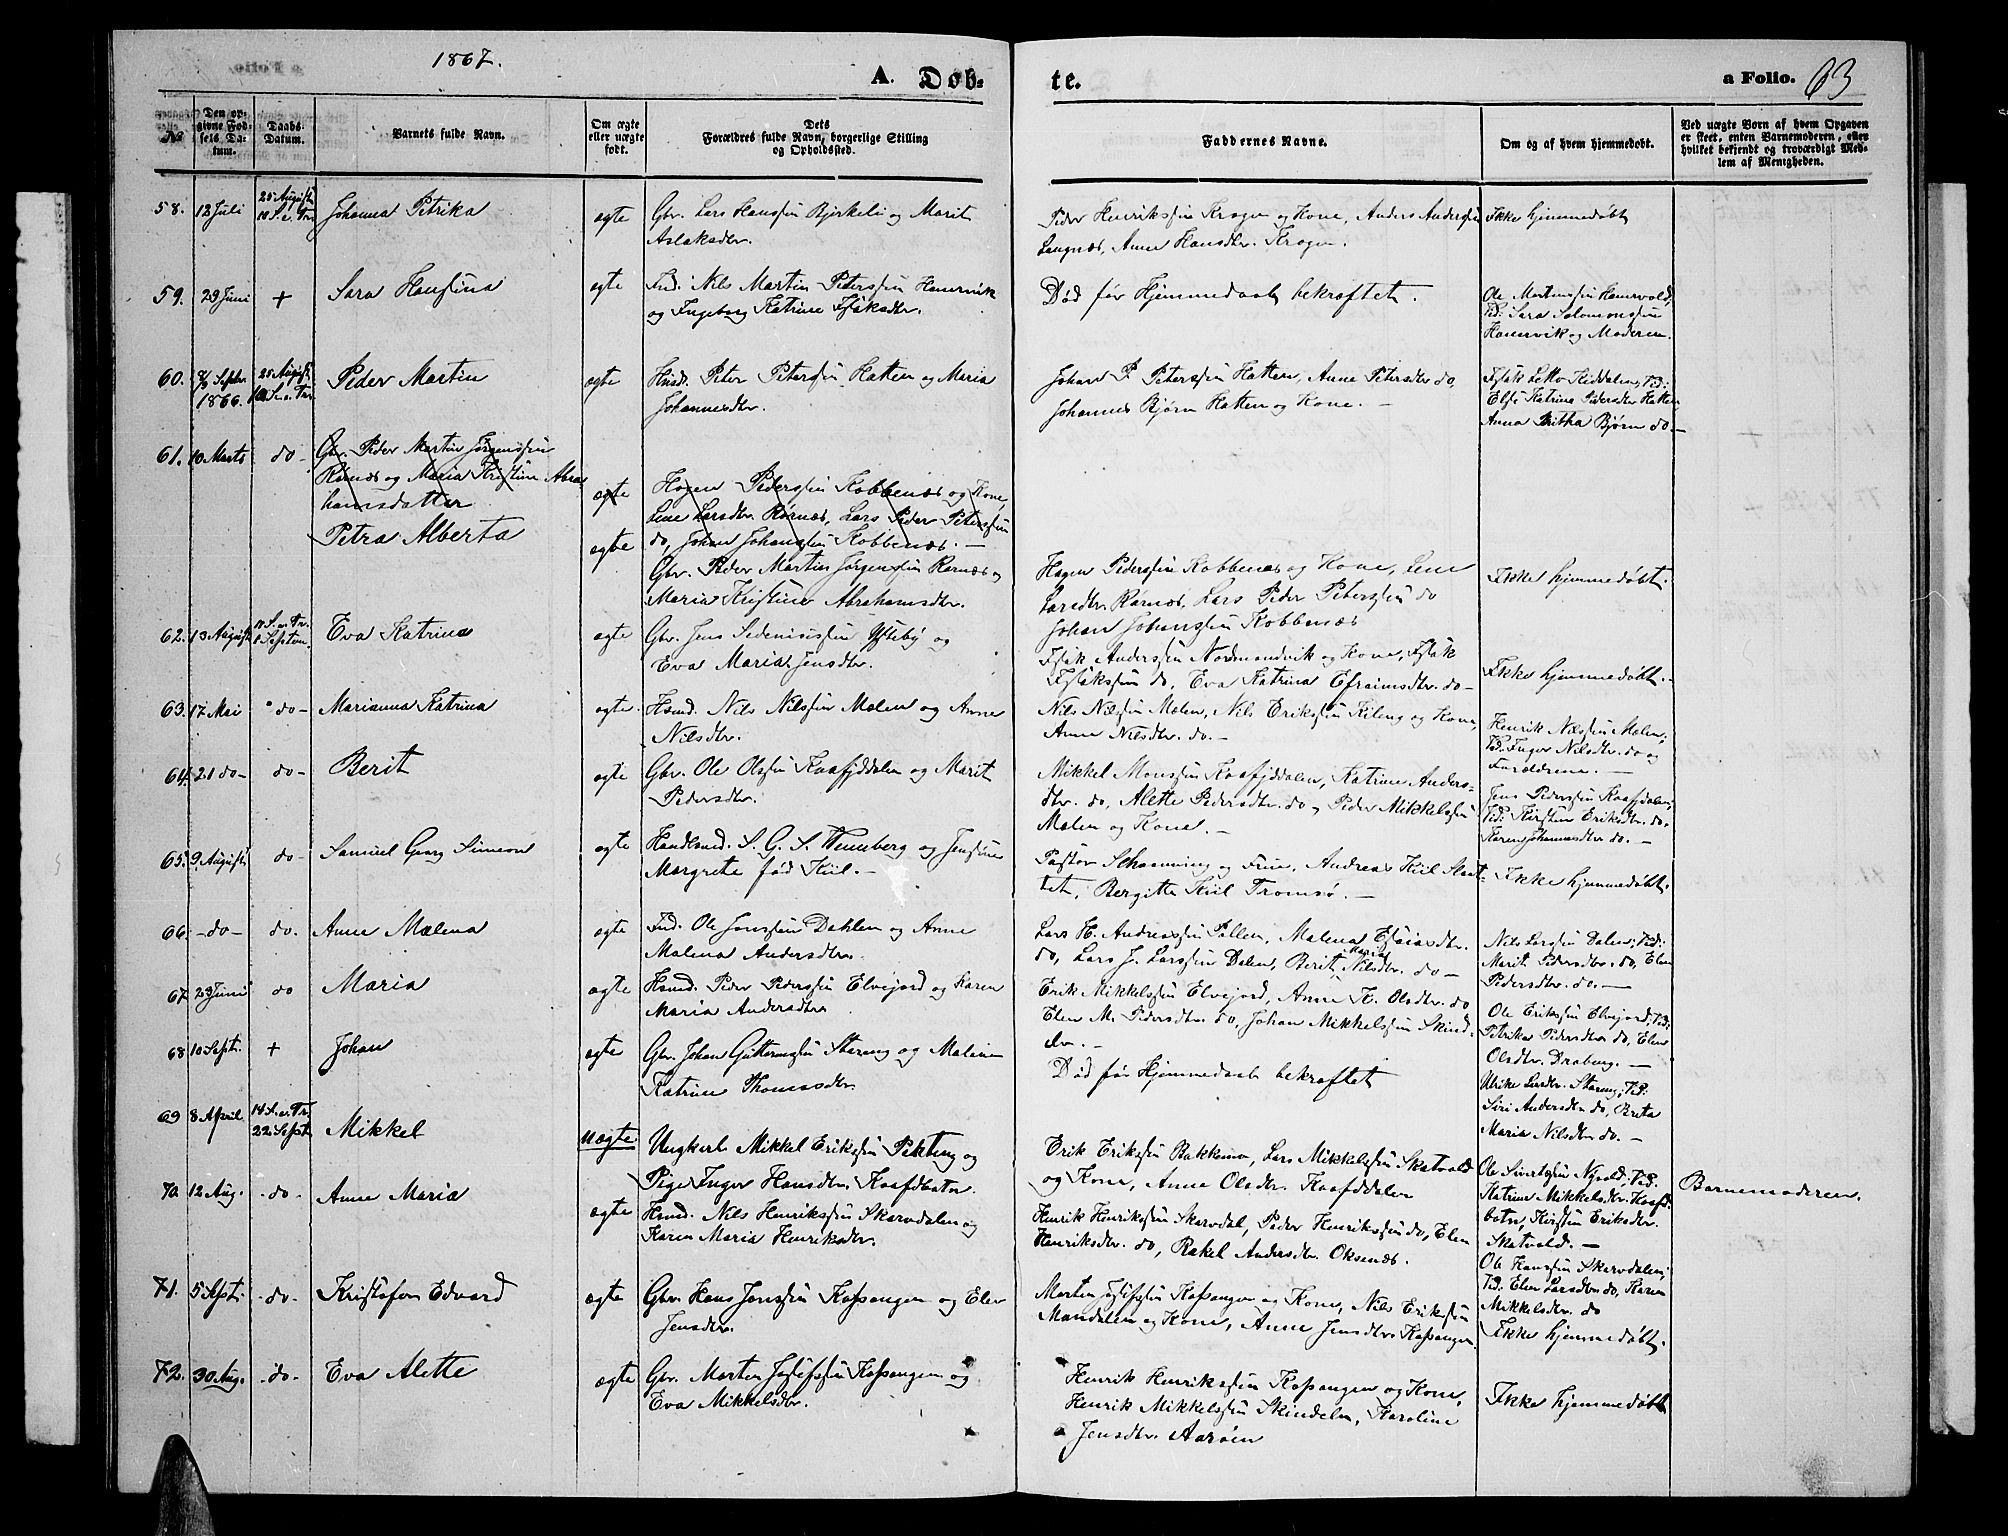 1867.
A. Døb-
te.
a Folio. 63
№
Den op-
givne Fød-
sels Da-
tum.
Daabs-
Datum.
Barnets fulde Navn.
Om ægte
eller uægte
født.
Dets
Forældres fulde Navn, borgerlige Stilling
og Opholdssted.
Faddernes Navne.
Om og af hvem hjemmedøbt.
Ved uægte Børn af hvem Opgaven
er skeet, enten Barnemoderen, eller
hvilket bekjendt og troværdigt Med-
lem af Menigheden.
58. 12 Juli 25 August 10 S. e. Tr. Johanna Petrika ægte Gbr. Lars Hanssen Bjerkeli og Marit
Aslaksdtr.
Peder Henrikssen Krogen og Kone, Anders Anderssen
Langnæs, Anne Hansdtr. Krogen.
Ikke hjemmedøbt
59. 29 Juni + Sara Hansina ægte Ind. Nils Martin Peterssen Hamervik
og Ingeborg Katrine Isaksdtr.
Død før Hjemmedaab bekræftet.
Ole Mortenssen Hamervold,
Vid: Sara Salomonssen
Hamervik og Moderen.
60. Septbr. 1866. 25 August 10 S. e. Tr. Peder Martin ægte Husd. Peter Peterssen Hatten og Maria
Johannesdtr.
Johan P. Peterssen Hatten, Anne Petersdtr do,
Johannes Bjørn Hatten og Kone. -
Isak Kiddalen, Vid:
Else Katrina Pedersdtr Hatten
Anna Britha Bjørn do. -
61. 10 Marts do- Gbr. Peder Martin Jørgenssen
Rørnæs og Maria Kristine Abra-
hamsdatter
Petra Alberta
ægte
ægte
Hagen Pederssen Kobbenæs og Kone,
Lene Larsdtr. Rørnæs, Lars Peder Peterssen
do, Johan Johanssen Kobbenæs. -
Gbr. Peder Martin Jørgenssen Rørnæs og
Maria Kristine Abrahamsdtr.
Hagen Pederssen Kobbenæs og Kone, Lene
Larsdtr. Rørnæs, Lars Peder Peterssen do
Johan Johanssen Kobbenæs
Ikke hjemmedøbt.
62. 13 August 11 S. e. Tr. 1 Septem. Eva Katrina ægte Gbr. Jens Ytteby og
Eva Maria Jensdtr.
Isak Anderssen Normandvik og Kone, Isak
Isakssen do, Eva Katrina Efraimsdtr. do-
Ikke hjemmedøbt. -
63. 17 Mai do- Marianna Katrina ægte. Hsmd. Nils Nilssen Malen og Anne
Nilsdtr.
Nils Nilssen Malen, Nils Erikssen Kileng og Kone,
Anne Nilsdtr. do. -
Henrik Nilssen Malen;
Vid. Inger Nilsdtr. do og
Forældrene. -
64. 21 do- do- Berit ægte Gbr. Ole Olssen Kaafjddalen og Marit
Pedersdtr.
Mikkel Monssen Kaafjddalen, Katrine Anders-
dtr. do, Alette Pedersdtr. do, Peder Mikkelssen
Malen og Kone. -
Jens Pederssen Kaafjdalen;
Vid: Kirsten Eriksdtr. do.
Karen Johannesdtr do. -
65. 9 August. do- Samuel Georg Simeon ægte Handlsmd. S. G. S. Wennberg og Jensine
Margrete fød Kiil. -
Pastor Schanning og Frue, Andreas Kiil Slot-
tet, Bergitte Kiil Tromsø. -
Ikke hjemmedøbt.
66. -do- do. Anne Malena ægte Ind. Ole Jonssen Dahlen og Anne
Malena Andersdtr.
Lars H. Andreassen Pollen, Malena Esaiasdtr.
do, Lars J. Larssen Dalen, Berit Maria Nilsdtr. do -
Nils Larssen Dalen; Vid:
Marit Pedersdtr. do, Elen
Pedersdtr. do. -
67 23 Juni do Maria ægte Hsmd. Peder Pederssen Elvejord og Karen
Maria Andersdtr.
Erik Mikkelssen Elvejord, Anne K. Olsdtr. do
Elen M. Pedersdtr. do, Johan Mikkelssen Skind-
elv. -
Ole Erikssen Elvejord; Vid:
Petrika Pedersdtr do, Elen
Olsdtr. Draberg. -
68 10 Septr. + Johan ægte Gbr. Johan Guttormssen Storeng og Malene
Katrine Thomasdtr.
Død før Hjemmedaab bekræftet
Ulrike Larsdtr. Storeng; Vid.
Siri Andersdtr do, Berita
Maria Nilsdtr do. -
69 8 April. 14 S. e. Tr. 22 Septr. Mikkel uægte Ungkarl Mikkel Erikssen og
Pige Inger Hansdtr. Kaafdbotn.
Erik Erikssen Bakkemo, Lars Mikkelssen Skatvold
og Kone, Anne Olsdtr. Kaafddalen
Ole Sivertssen Nyvold; Vid:
Katrine Mikkelsdtr. Kaafd-
botn, Kirsten Eriksdtr.
Skatvold. -
Barnemoderen.
70. 12 Aug. -do- Anne Maria ægte Hsmd. Nils Henrikssen Skarvdalen og
Karen Maria Henriksdtr.
Henrik Henrikssen Skarvdal, Peder Henrikssen do, Elen
Henriksdtr. do, Rakel Andersdtr. Oksenæs.
Ole Hanssen Skarvdalen;
Vid. Elen Larsdtr do, Karen
Mikkelsdtr. do
71. 5 Septr. -do- Kristofer Edvard ægte Gbr. Hans Jenssen Kaasangen og Elen
Jensdtr.
Morten Josefssen Kaasangen og Kone, Nils Erikssen
Mandalen og Kone, Anne Jensdtr. Kaasangen
Ikke hjemmedøbt.
72. 30 Aug. -do- Eva Alette ægte Gbr. Morten Josefssen Kaasangen og
Eva Mikkelsdtr.
Henrik Henrikssen Kaasangen og Kone,
Henrik Mikkelssen Skindelv, Karoline
Jensdtr. Aarøen
Ikke hjemmedøbt